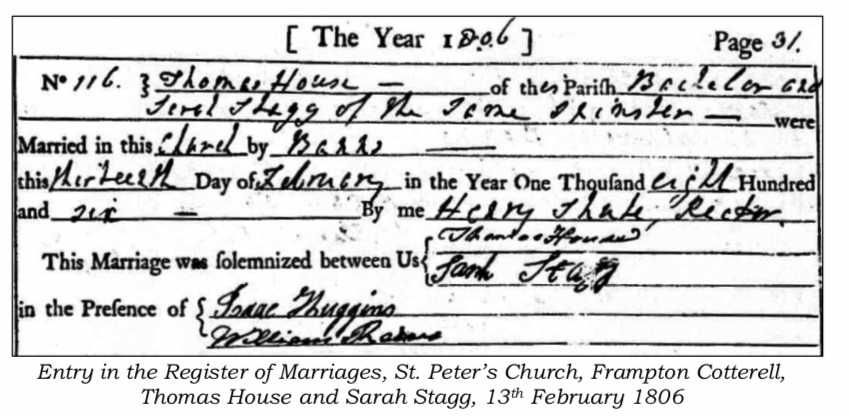 [ The Year 1806 ] Page 31.
No 116. } Thomas House — of thes Pariſh Bachelor and
Sarah Stagg of the Same Spinster — were
Married in this Church by Banns —
this thirteenth Day of February in the Year One Thouſand eight Hundred
and six — By me Henry Rector.
Thomas House
This Marriage was ſolemnized between Us { Sarah Stagg
in the Preſence of { Isaac Huggins
William
Entry in the Register of Marriages, St. Peter's Church, Frampton Cotterell,
Thomas House and Sarah Stagg, 13th February 1806